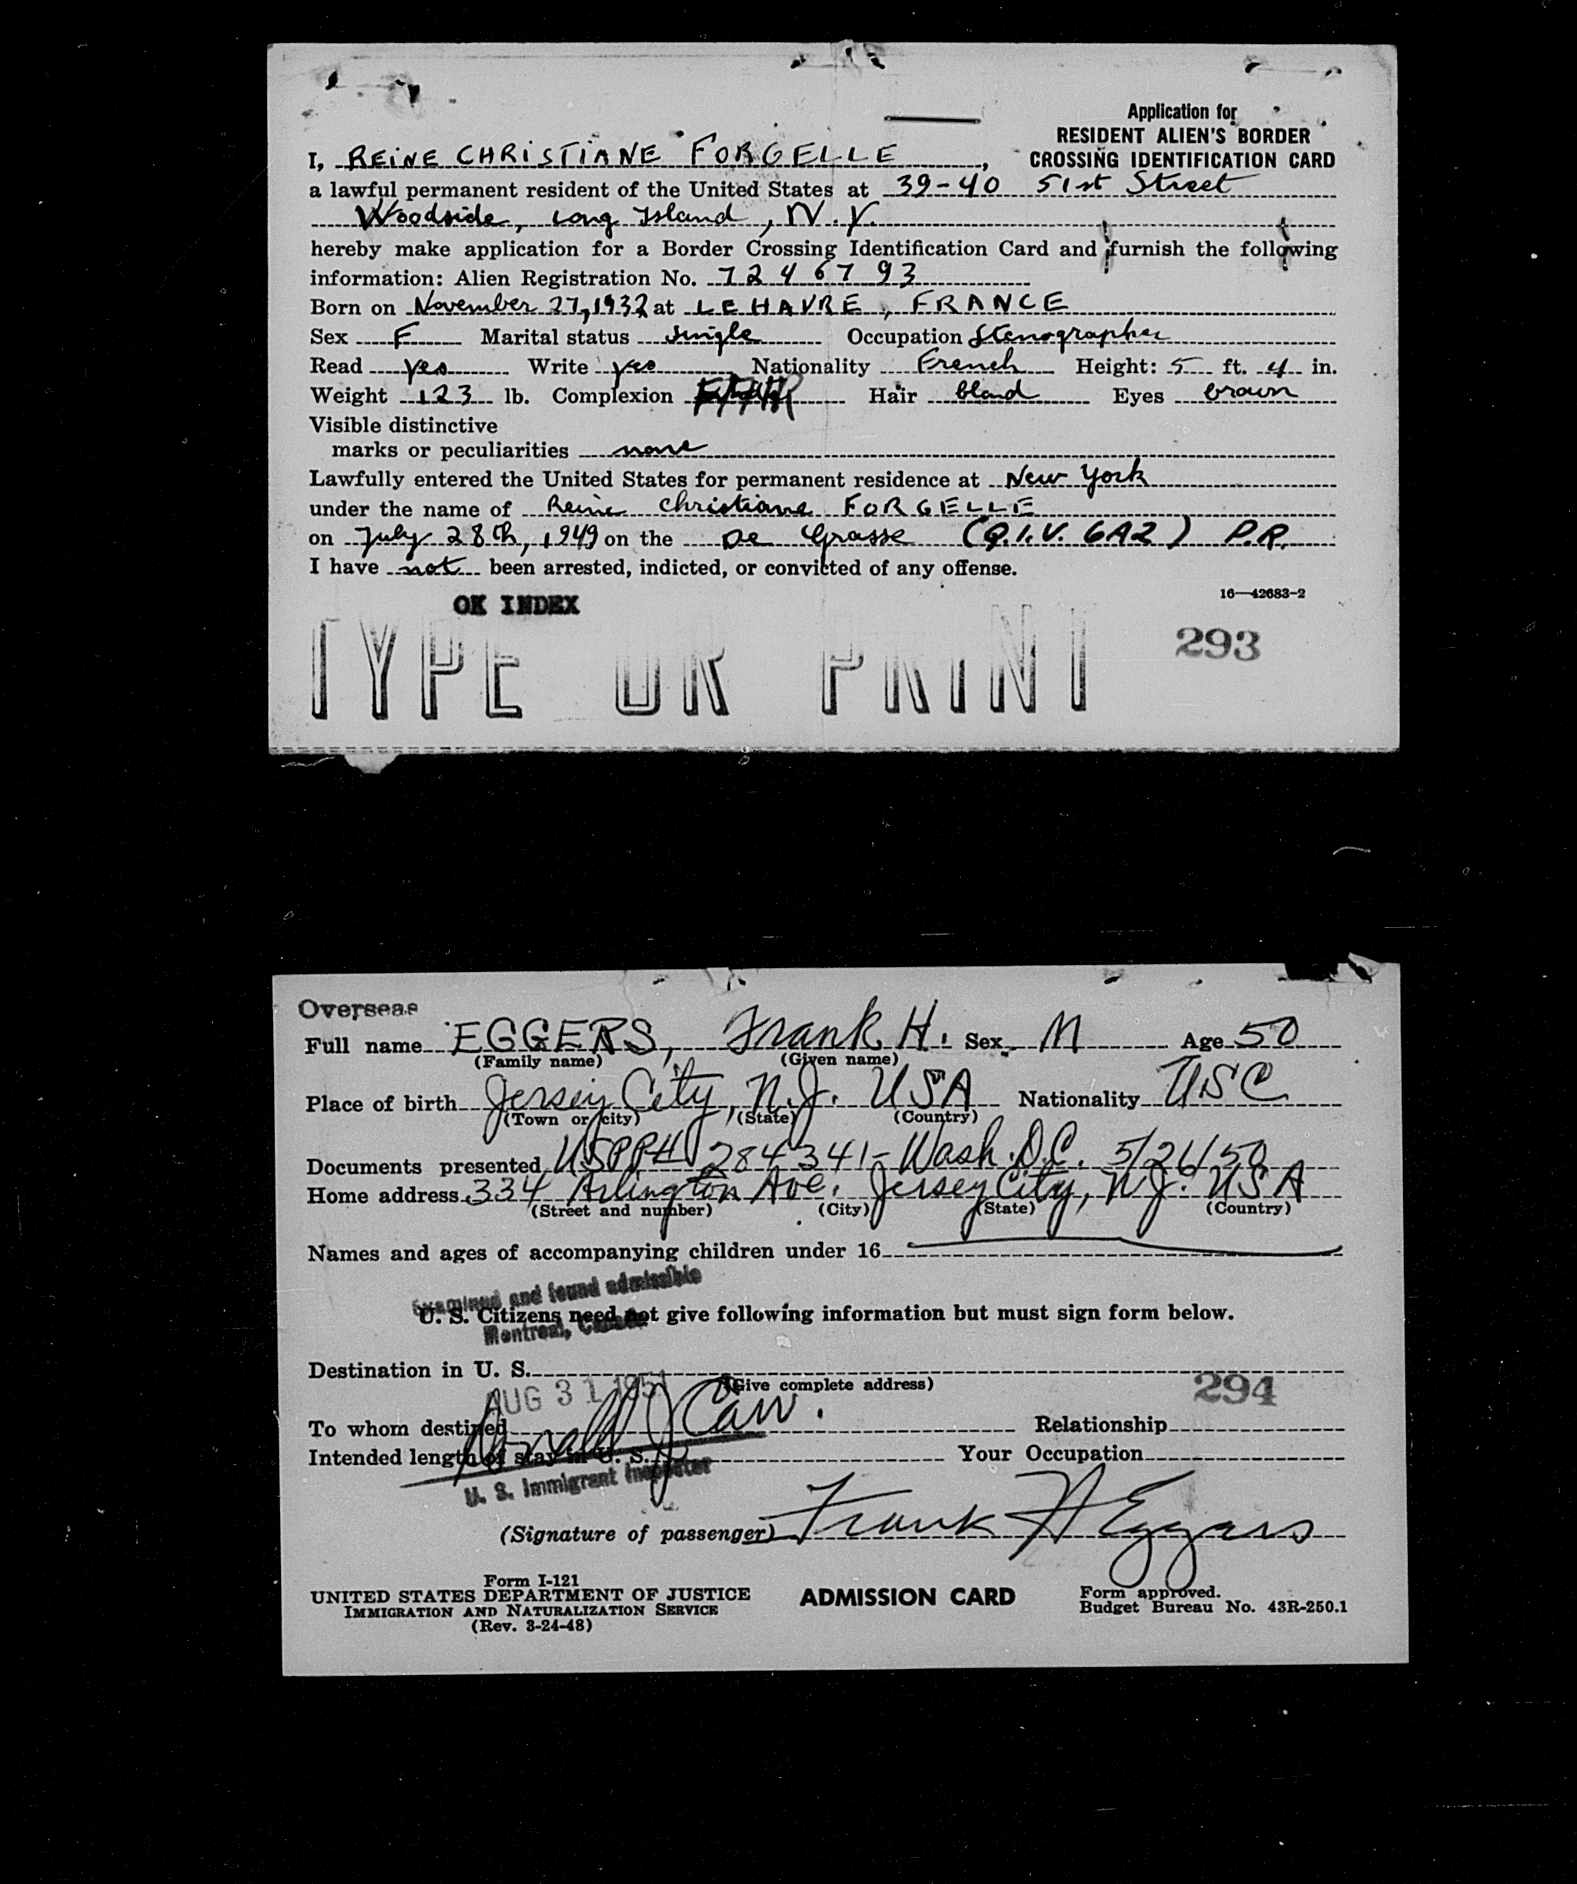 Application for
RESIDENT ALIEN'S BORDER
CROSSING IDENTIFICATION CARD
I, REINE CHRISTIANE FORGELLE,
a lawful permanent resident of the United States at 39-40 51st Street
Woodside, Long Island, N.Y.
hereby make application for a Border Crossing Identification Card and furnish the following
information: Alien Registration No. 7246793
Born on November 27, 1932 at LE HAVRE, FRANCE
Sex F Marital status single Occupation Stenographer
Read yes Write yes Nationality French Height: 5 ft. 4 in.
Weight 123 lb. Complexion FAIR Hair blond Eyes brown
Visible distinctive
marks or peculiarities none
Lawfully entered the United States for permanent residence at New York
under the name of Reine Christiane FORGELLE
on July 28th, 1949 on the De Grasse (Q.I.V. 6A2) P.R.
I have not been arrested, indicted, or convicted of any offense.
16—42683-2
OK INDEX
TYPE OR PRINT 293
Overseas
Full name EGGERS, Frank H. Sex M Age 50
(Family name) (Given name)
Place of birth Jersey City, N.J. USA Nationality USC
(Town or city) (State) (Country)
Documents presented USPP# 284341- Wash. D.C. 5/26/50
Home address 334 Arlington Ave. Jersey City, N.J. USA
(Street and number) (City) (State) (Country)
Names and ages of accompanying children under 16
Examined and found admissible
U. S. Citizens need not give following information but must sign form below.
Montreal, Canada
Destination in U. S.
(Give complete address)
AUG 31 1951 294
To whom destined Relationship
Intended length of stay in U. S. Your Occupation
U. S. Immigrant Inspector
(Signature of passenger) Frank H Eggers
Form I-121
UNITED STATES DEPARTMENT OF JUSTICE
IMMIGRATION AND NATURALIZATION SERVICE
(Rev. 3-24-48)
ADMISSION CARD
Form approved.
Budget Bureau No. 43R-250.1